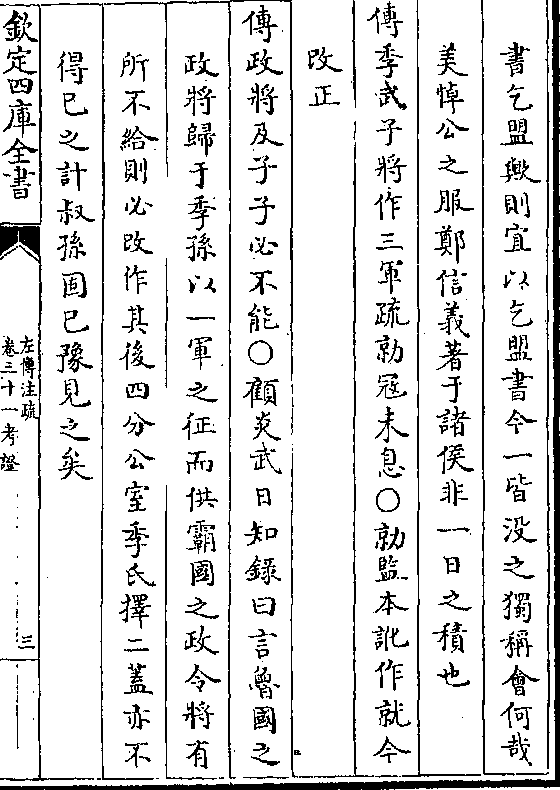 書乞盟歟則宜以乞盟書今一皆没之獨稱會何哉
美悼公之服鄭信義著于諸侯非一日之積也
傳季武子將作三軍疏勍冦未息○勍監本訛作就今
改正
傳政將及子子必不能○顧炎武日知錄曰言魯國之
政將歸于季孫以一軍之征而供霸國之政令將有
所不給則必改作其後四分公室季氏擇二蓋亦不
得已之計叔孫固已豫見之矣
欽定四庫全書
左傳注疏
卷三十一考證
三